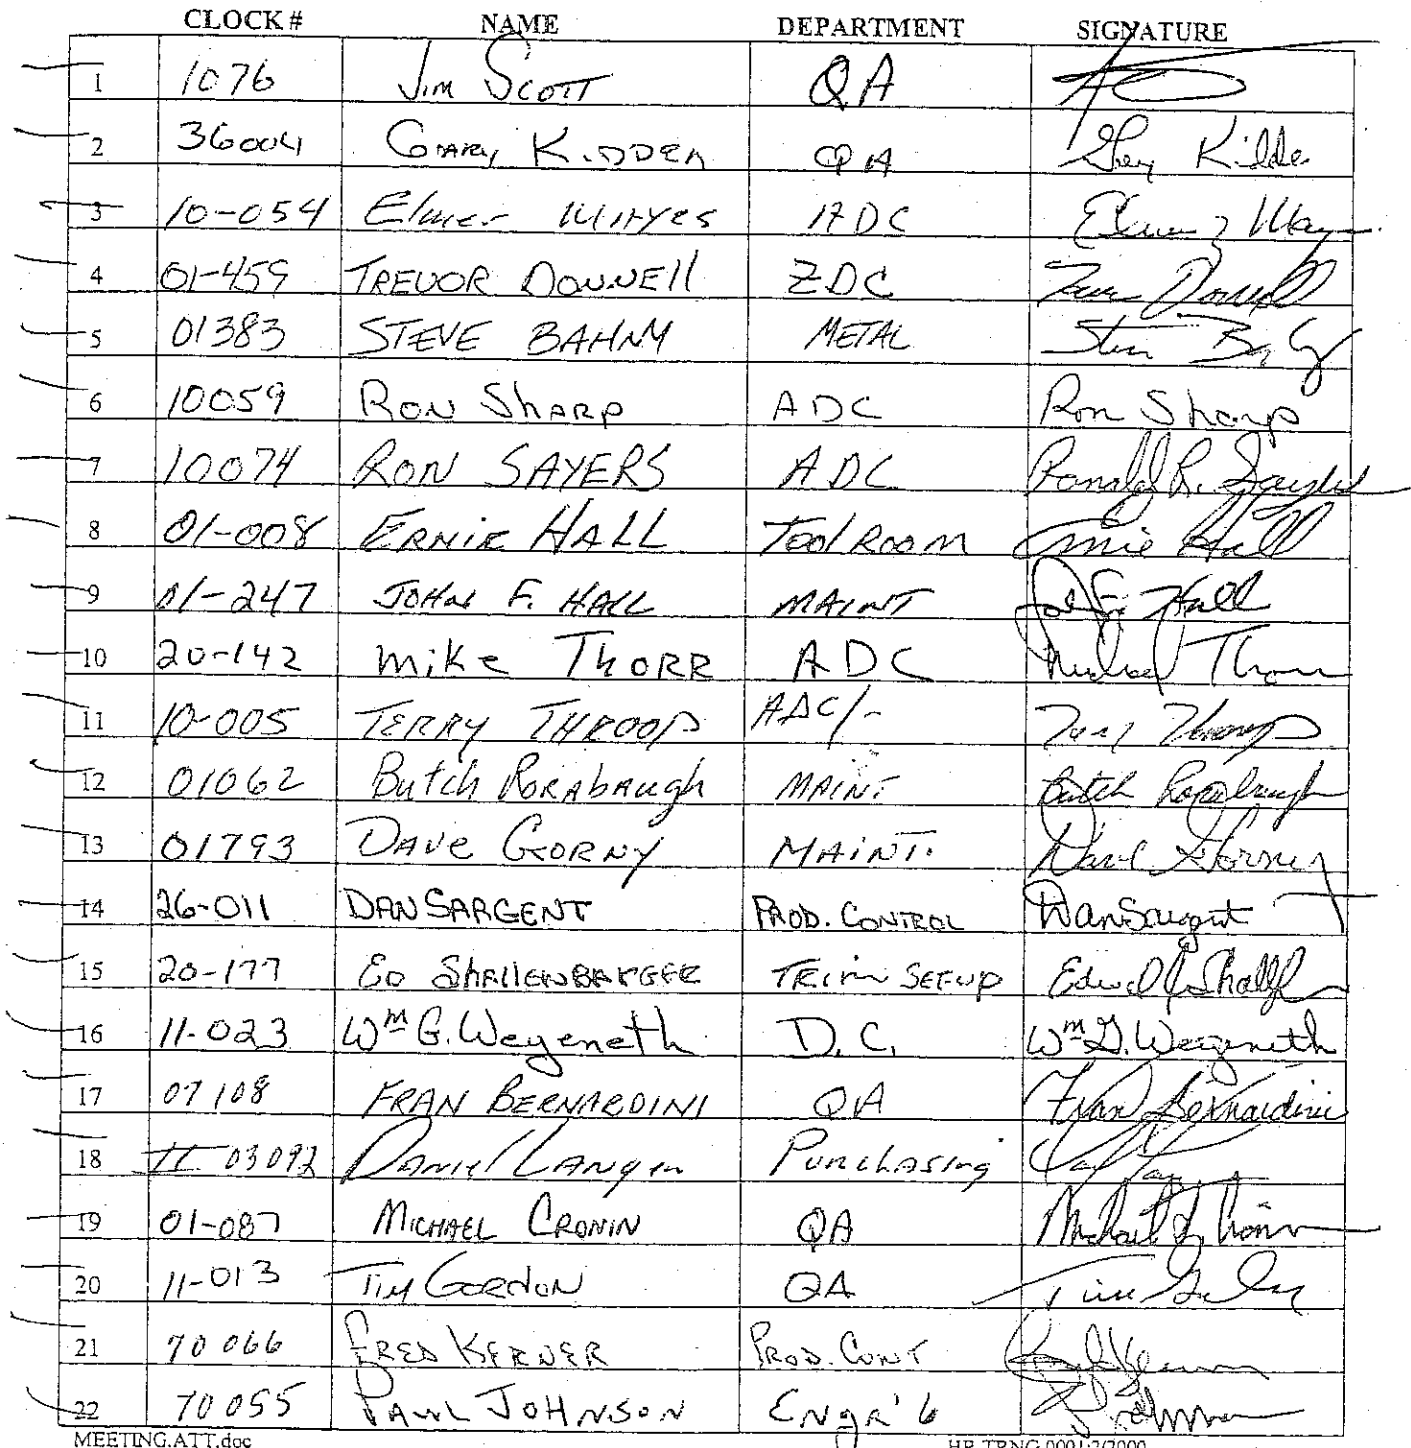 CLOCK # NAME DEPARTMENT SIGNATURE
1 1076 Jim Scott QA
2 36004 Gary Kidder QA Gary Kidder
3 10-054 Elmer Mayes ADC Elmer Mayes
4 01-459 TREVOR DONNEll ZDC Donnell
5 01383 STEVE BAHNY METAL Steve
6 10059 RON ShARP ADC Ron Sharp
7 10074 RON SAYERS ADC Ronald R. Sayers
8 01-008 ERNIE HALL Tool ROOM Ernie Hall
9 01-247 JOHN F. HALL MAINT John F. Hall
10 20-142 mike ThORR ADC Michael Thorr
11 10-005 TERRY THROOP ADC/- Terry Throop
12 01062 Butch RORAbAugh MAINT Butch Rorabaugh
13 01793 DAVe GORNY MAINT. Dave Gorny
14 26-011 DAN SARGENT PROD. CONTROL Dan Sargent
15 20-177 ED ShAllENBARGER TRIM SET-UP
16 11-023 Wm G. Weyeneth D.C. Wm G. Weyeneth
17 07108 FRAN BERNARDINI QA Fran Bernardini
18 11 03092 DANIEL LANGIN PURChASINg
19 01-087 MICHAEL CRONIN QA Michael Cronin
20 11-013 TIM GORDON QA Tim
21 70066 FRED KERNER PROD. CONT
22 70055 PAUL JOHNSON ENgR'G
MEETING.ATT.doc HR-TRNG.0001:2/7000